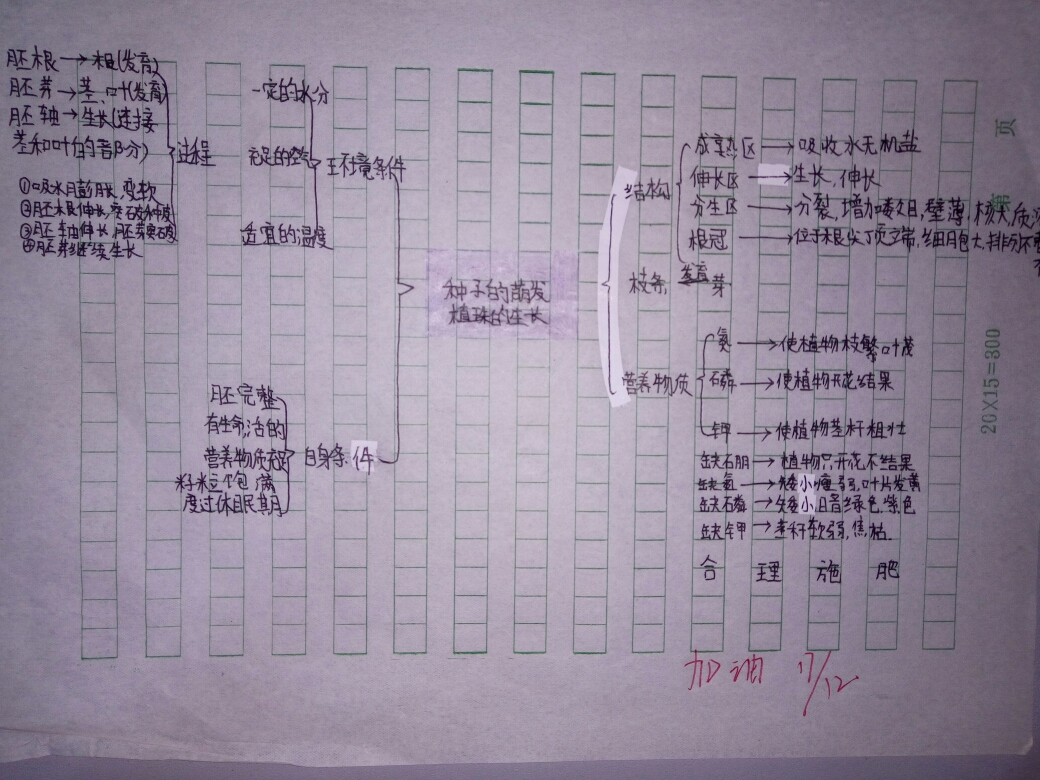 胚根→根(发育)
胚芽→茎、叶(发育)
胚轴→生长(连接
茎和叶的部分)
过程
①吸水膨胀,变软
②胚根伸长,突破种皮
③胚轴伸长,胚芽突破
④胚芽继续生长
一定的水分
充足的空气
适宜的温度
环境条件
胚完整
有生命活的
营养物质充足
籽粒饱满
度过休眠期
自身条件
种子的萌发
植株的生长
结构
成熟区→吸收水无机盐
伸长区→生长,伸长
分生区→分裂,增加数目,壁薄,核大,质浓
根冠→位于根尖顶端,细胞大,排列不
枝条 发育 芽
营养物质
氮→使植物枝繁叶茂
磷→使植物开花结果
钾→使植物茎杆粗壮
缺硼→植物只开花不结果
缺氮→矮小瘦弱,叶片发黄
缺磷→矮小,暗绿色,紫色
缺钾→茎秆软弱,焦枯
合理施肥
加油 17/12
页
第
20X15=300